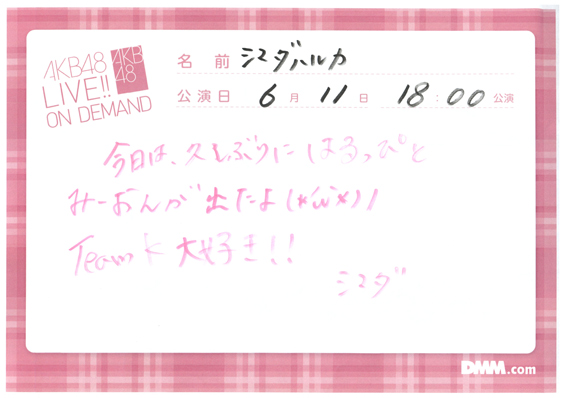 AKB48
LIVE!!
ON DEMAND
AKB
48
名前 シマダハルカ
公演日 6月11日 18:00公演
今日は、久しぶりにはるっぴと
みーおんが出たよ(*´ω`*)ノ
Team K 大好き!!
シマダ
DMM.com